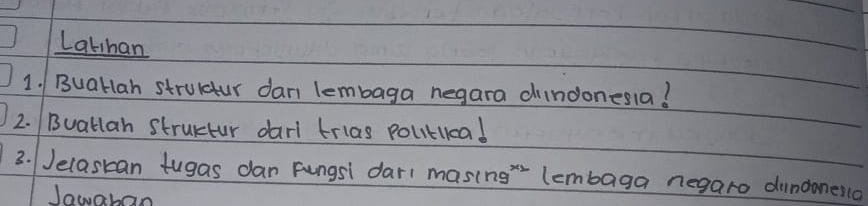 Latihan
1. Buatlah struktur dari lembaga negara diindonesia!
2. Buatlah struktur dari trias politica!
3. Jelaskan tugas dan Fungsi dari masing×2 lembaga negara diindonesia
Jawaban